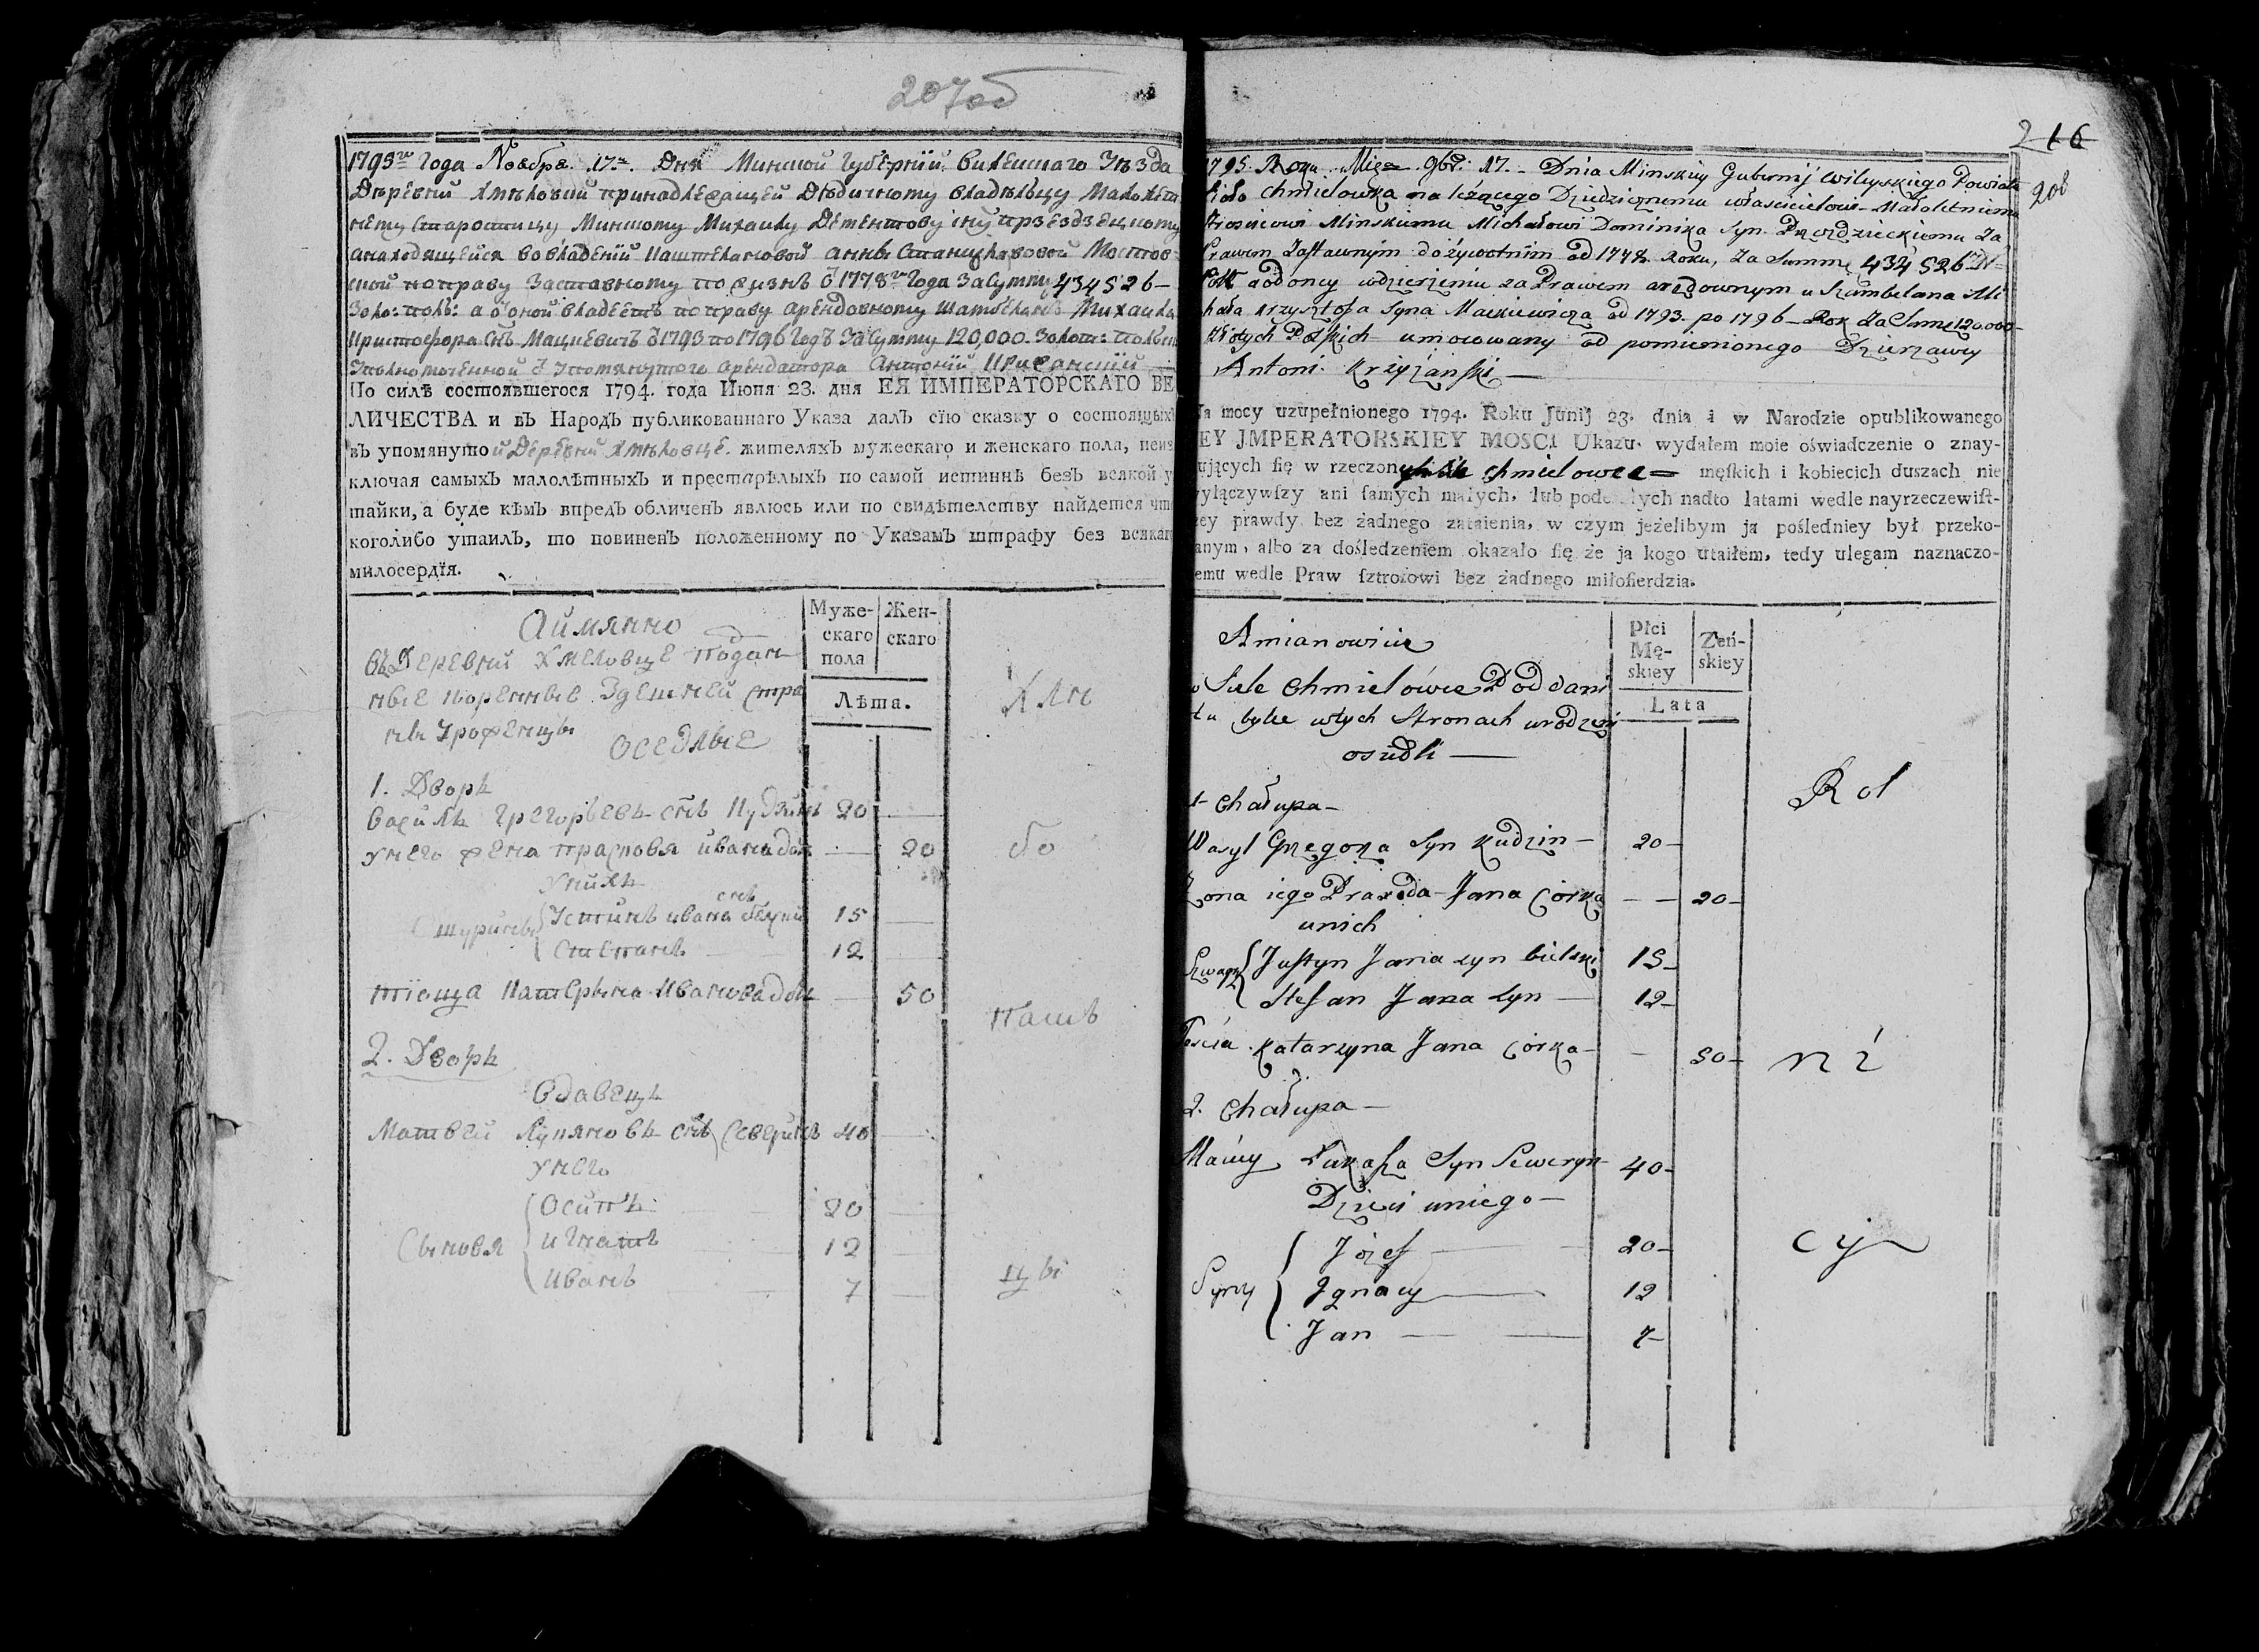 207об
1795го Года Ноября 17го Дня Минской Губернии Вилейскаго Уезда
Деревни Хмѣловки принадлежащей Дѣдичному владѣльцу Малолѣт
нему Старостицу Минскому Михаилу
а находящейся во владении Каштеляновой Анны Станиславовой
по праву Заставному по жизнь 1778го Года За сумму 434526—
Золо: поль: а оной владеетъ по праву Арендовному Шамбелянъ Михаилъ
Криштофора снъ Мацкевичъ 1793 по 1796 Годъ За сумму 120,000. Золот: Польск
Уполномоченной Упомянутого Арендатора Антоний Крижанский
По силѣ состоявшегося 1794. года Июня 23. дня ЕЯ ИМПЕРАТОРСКАГО ВЕ
ЛИЧЕСТВА и въ Народъ публикованнаго Указа далъ сїю сказку о состоящыхъ
въ упомянутой Деревни Хмѣловце. жителяхъ мужескаго и женскаго пола, неиз
ключая самыхъ малолѣтныхъ и престарѣлыхъ по самой истиннѣ безъ всякой у
тайки, а буде кѣмъ впредъ обличенъ явлюсь или по свидѣтелству найдется что
коголибо утаилъ, то повиненъ положенному по Указамъ штрафу без всякаго
милосердїя.
Муже-
скаго
пола
Жен-
скаго
Лѣта.
Аимянно
въ Деревни Хмеловце Подан
ные коренные Здешней стра
ны Уроженцы
оседлые
Хлѣ
1. Дворъ
Василъ Грегорьевъ снъ Кудзинъ 20 —
У него жена Прасковя Ивана дочь — 20
бо
У нихъ
Шурины Устинъ Ивана снъ Белский 15 —
Степанъ — 12 —
тїоща Катерына Иванова дочъ — 50
пашъ
2. Дворъ
Вдавецъ
Матвей Лукяновъ снъ Северинъ 40 —
У него
Сыновя
Осипъ 20 —
Игнатъ 12 —
Иванъ 7 —
цы
216
208
1795. Roku Mięca 9br: 17. Dnia Minskiey Gubernij Wileyskiego Powiatu
Sioło Chmielowka należącego Dziedzicznemu właścicielowi Małoletniemu
Minskiemu Michałowi Dominika Syn. Przezdzieckiemu Za
Prawem Zastawnym dożywotnim od 1778. Roku, Za Summę 434526
w dzierżeniu za Prawem arędownym u Szambelana Mi
chała Krzysztofa Syna Mackiewicza od 1793. po 1796 Rok Za Sumę 120000
Złotych Polskich umocowany od pomienionego Dzierżawcy
Antoni Krzyżański —
Na mocy uzupełnionego 1794. Roku Junij 23. dnia i w Narodzie opublikowanego
JEY JMPERATORSKIEY MOSCI Ukazu. wydałem moie oświadczenie o znay-
dujących ſię w rzeczoney Sile Chmielowce = męſkich i kobiecich duszach nie
wyłączywſzy ani ſamych małych, lub podeszłych nadto latami wedle nayrzeczewiſt-
szey prawdy bez żadnego zataienia, w czym jeżelibym ja pośledniey był przeko-
nanym, albo za dośledzeniem okazało ſię że ja kogo utaiłem, tedy ulegam naznaczo-
nemu wedle Praw ſztrofowi bez żadnego miłoſierdzia.
Płci
Mę-
skiey
Żeń-
skiey
Lata
Amianowicie
w Siele Chmielówce Poddani
tu bylce w tych Stronach urodzeni
osiedli —
Rol
1- Chałupa —
Wasyl Grzegorza Syn Kudzin — 20 —
Żona iego Praxeda Jana Córka — — 20 —
u nich
Szwagry
Justyn Jana syn Bielski 15 —
Stefan Jana syn — 12 —
Teścia Katarzyna Jana Córka — — 50 —
ni
2. Chałupa —
Maciey Łukaſza Syn Seweryn — 40 —
Dzieci u niego —
Syny
Józef — 20 —
Jgnacy — 12
Jan — 7 —
cy